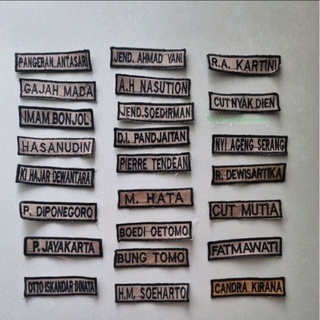 PANGERAN ANTASARI
GAJAH MADA
IMAM BONJOL
HASANUDIN
KI HAJAR DEWANTARA
P. DIPONEGORO
P. JAYAKARTA
OTTO ISKANDAR DINATA
JEND. AHMAD YANI
A.H NASUTION
JEND. SOEDIRMAN
D.I. PANDJAITAN
PIERRE TENDEAN
M. HATA
BOEDI OETOMO
BUNG TOMO
H.M. SOEHARTO
R.A. KARTINI
CUT NYAK DIEN
NYI AGENG SERANG
R. DEWISARTIKA
CUT MUTIA
FATMAWATI
CANDRA KIRANA